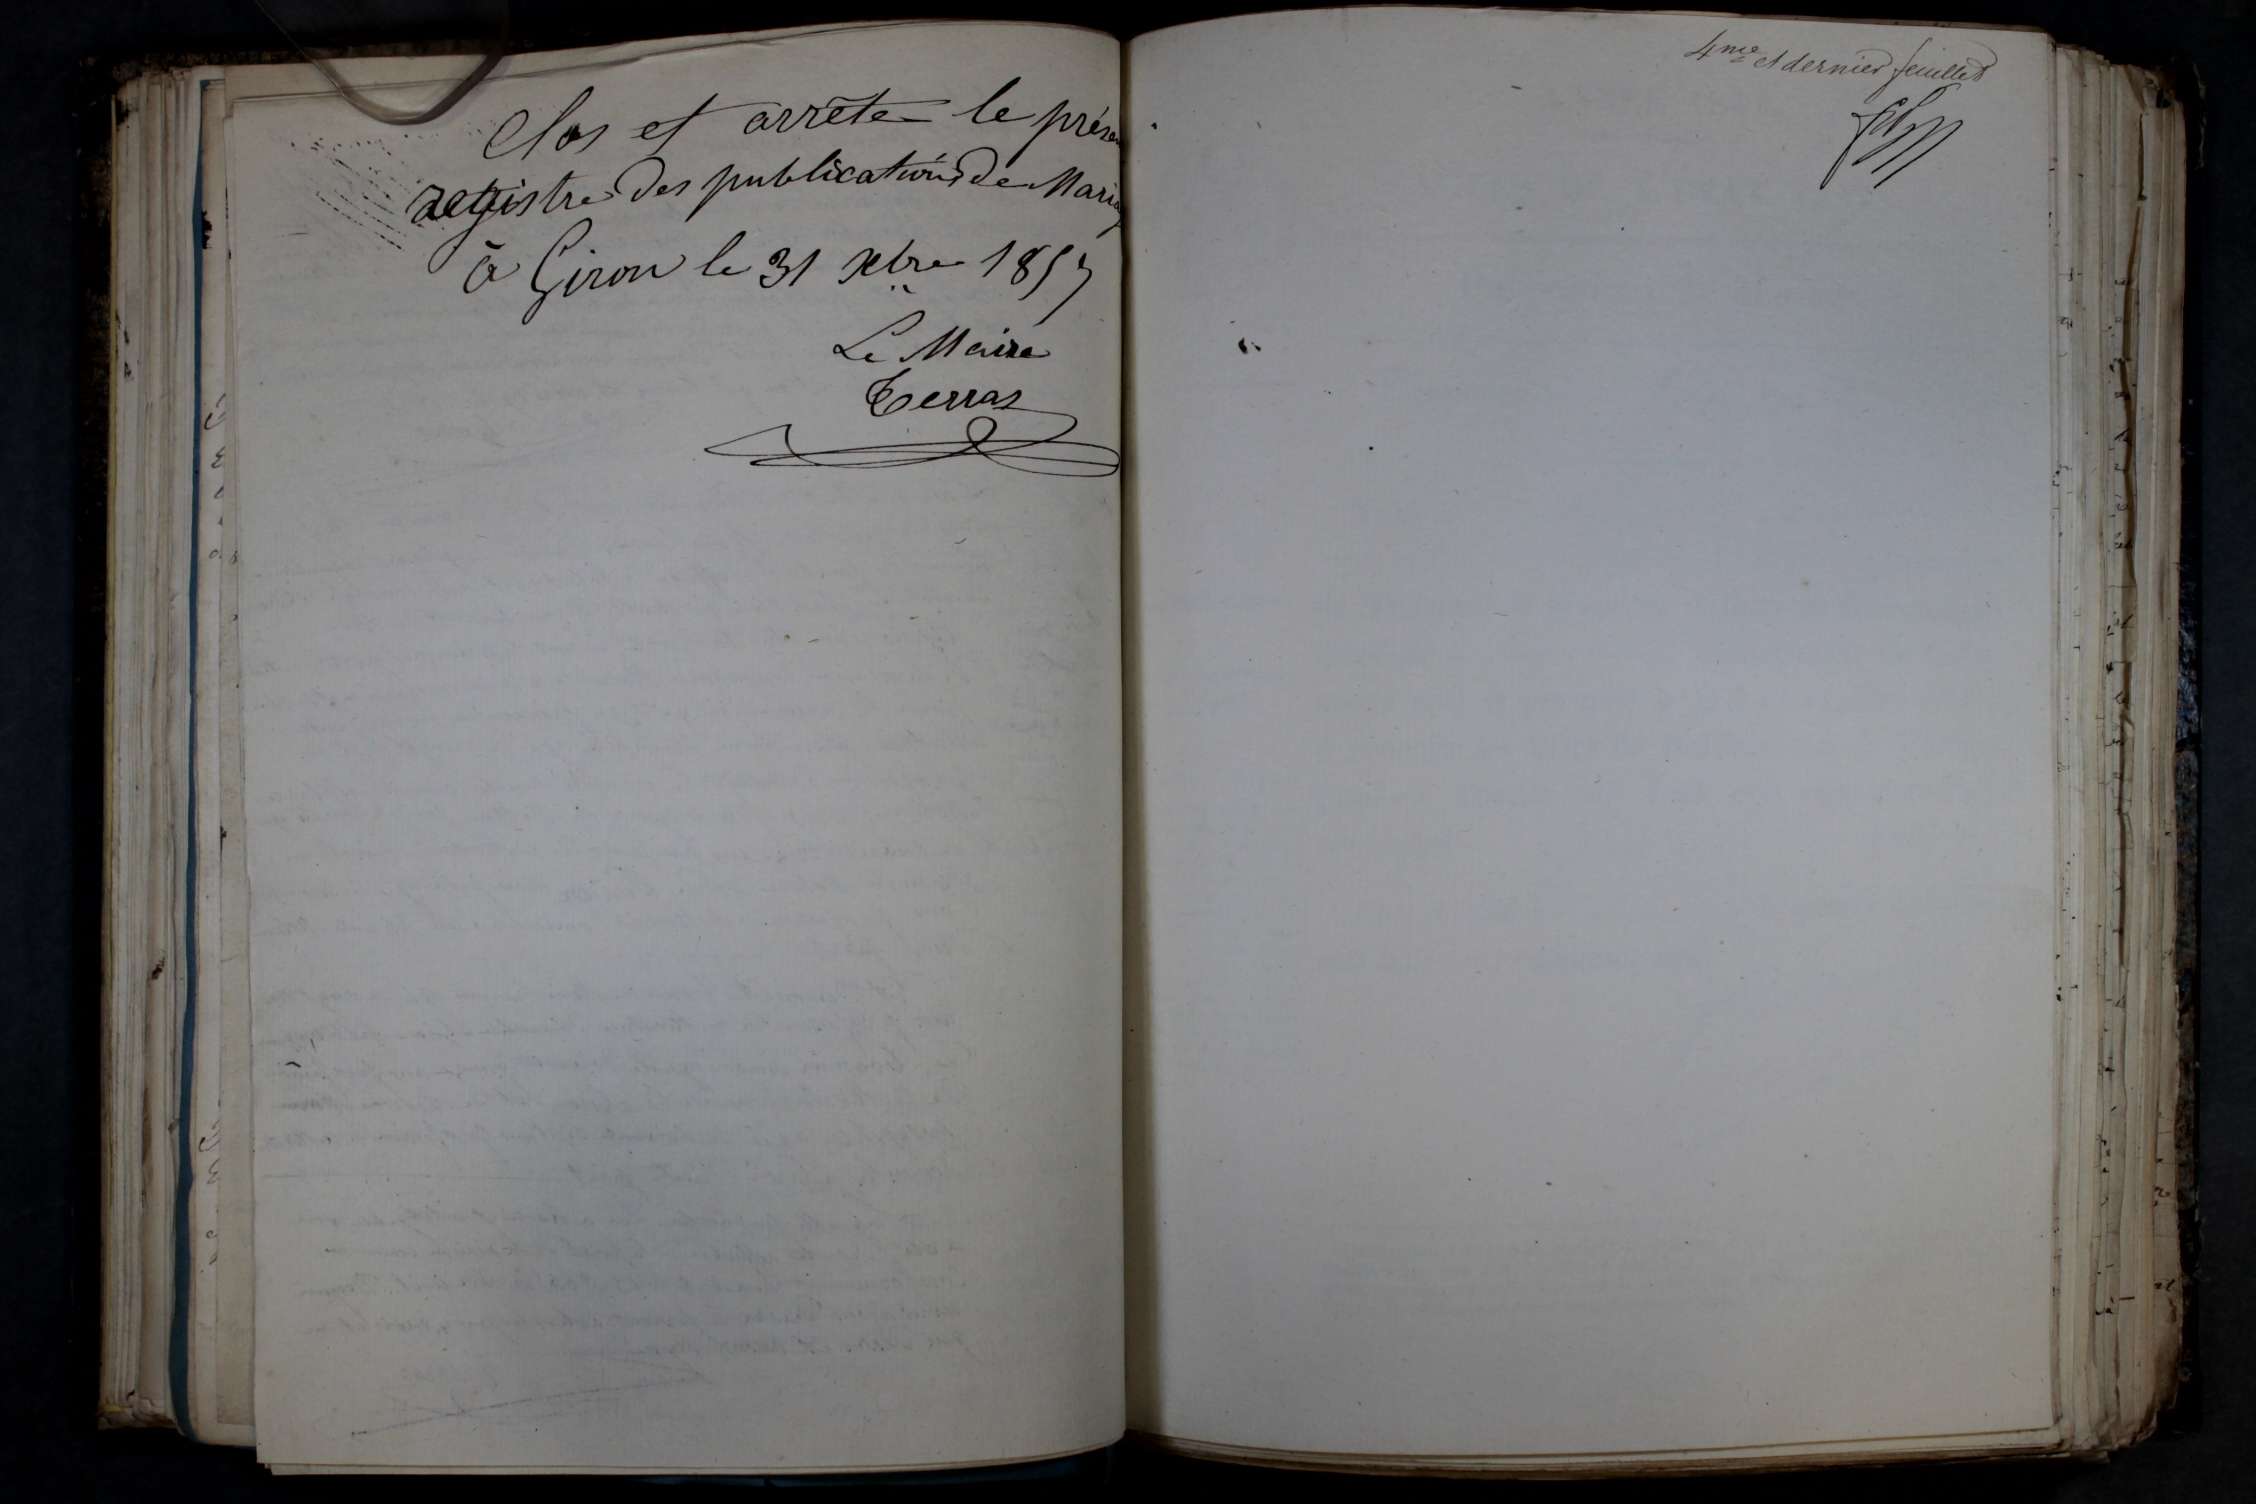 Clos et arrête le présen
registre des publications de Maria
à Giron le 31 Xbre 1857
Le Maire
Terraz
4me et dernier feuillet